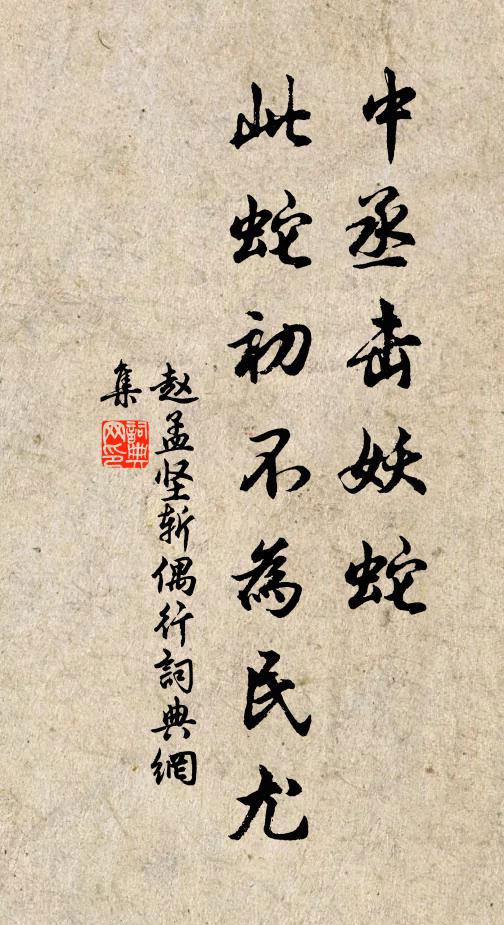 中丞击妖蛇
此蛇初不為民尤
赵孟坚斩偶行詞典網
集
詞典
网印